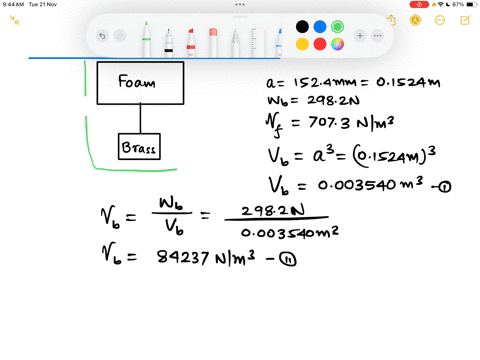 9:44 AM Tue 21 Nov
67%
Foam
Brass
a = 152.4mm = 0.1524m
W_b = 298.2N
γ_f = 707.3 N/m³
V_b = a³ = (0.1524m)³
V_b = 0.003540 m³ - ①
γ_b = W_b / V_b = 298.2N / 0.003540m²
γ_b = 84237 N/m³ - ⑪